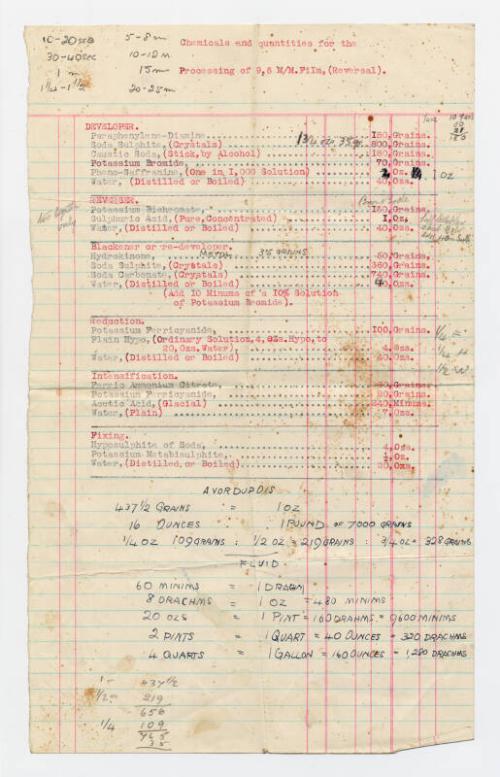 10-20sec 5-8m
30-40sec 10-12m
1m 15m
1¼-1½ 20-25m
Chemicals and quantities for the
Processing of 9,5 M/M.Film,(Reversal).
DEVELOPER.
Paraphenylene-Diamine 150.Grains.
Soda Sulphite,(Crystals) 1¾ ozs, 35gr. 800.Grains.
Caustic Soda,(Stick,by Alcohol) 150.Grains.
Potassium Bromide, 70.Grains.
Pheno-Saffranine,(One in 1,000 Solution) Oz. 1 OZ
Water,(Distilled or Boiled) 40.Ozs.
REVERSER.
Potassium Bichromate, 150.Grains.
Sulphuric Acid,(Pure,Concentrated) 1.Oz.
Water,(Distilled or Boiled) 40.Ozs.
only
Blackener or re-developer.
Hydrokinone, METOL 35 GRAINS 50.Grains.
Soda Sulphite,(Crystals) 360.Grains.
Soda Carbonate,(Crystals) 740.Grains.
Water,(Distilled or Boiled) 40.Ozs.
(Add 10 Minums of a 10% Solution
of Potassium Bromide).
Reduction.
Potassium Ferricyanide, 100.Grains.
Plain Hypo,(Ordinary Solution,4,Ozs.Hypo,to
20,Ozs.Water), 4.Ozs.
Water,(Distilled or Boiled) 20.Ozs.
Intensification.
Ferric Ammonium Citrate, Grains.
Potassium Ferricyanide, 20.Grains.
Acetic Acid,(Glacial) 240.Minums.
Water,(Plain) 7.Ozs.
Fixing.
Hyposulphite of Soda, 4.Ozs.
Potassium Metabisulphite, ½.Oz.
Water,(Distilled,or Boiled) 20.Ozs.
AVORDUPOIS
437½ GRAINS = 1 OZ
16 OUNCES : 1 POUND OF 7000 GRAINS
¼ OZ 109 GRAINS : ½ OZ = 219 GRAINS : ¾ OZ = 328 GRAINS
FLUID
60 MINIMS = 1 DRACHM
8 DRACHMS = 1 OZ = 480 MINIMS
20 OZS = 1 PINT = 160 DRAHMS = 9600 MINIMS
2 PINTS = 1 QUART = 40 OUNCES = 320 DRACHMS
4 QUARTS = 1 GALLON = 160 OUNCES = 1,280 DRACHMS
1- 437½
½- 219
656
¼ 109
765
35